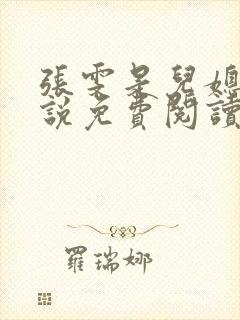 張雯是兒媳
說免費閱讀
羅瑞娜